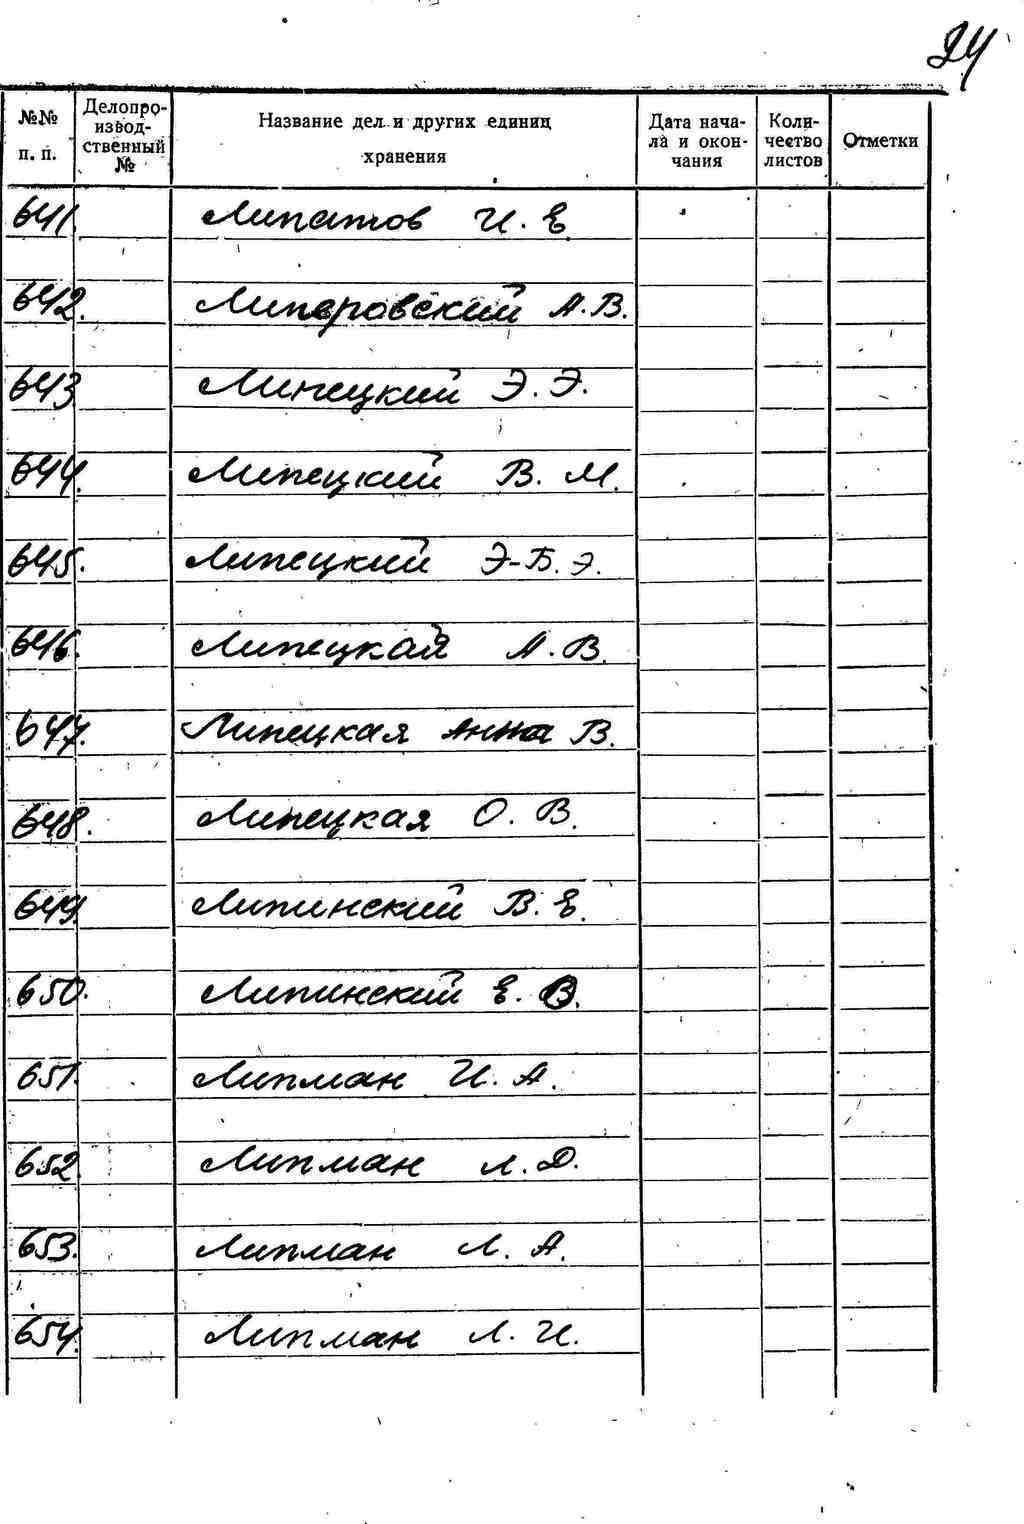 24
№№ п. п. Делопроизводственный № Название дел и других единиц хранения Дата начала и окончания Количество листов Отметки
641. Липатов И. Е.
642. Липеровский А. В.
643. Липецкий Э. Э.
644. Липецкий В. М.
645. Липецкий Э-Б. Э.
646. Липецкая А. В.
647. Липецкая Анна В.
648. Липецкая О. В.
649. Липинский В. Е.
650. Липинский Е. В.
651. Липман И. А.
652. Липман Л. Д.
653. Липман Л. А.
654. Липман Л. И.